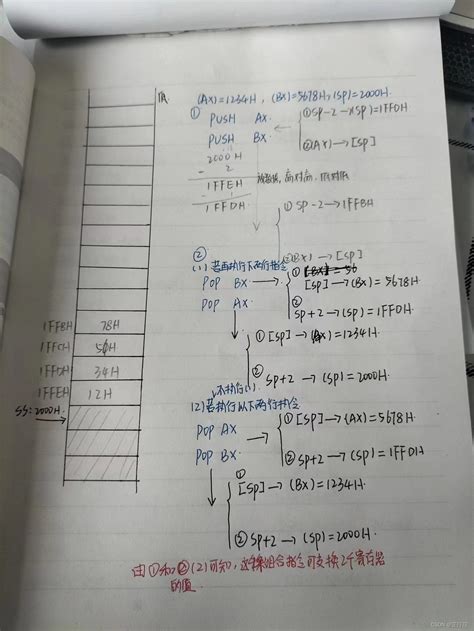 (AX)=1234H , (BX)=5678H, (SP)=2000H
①
PUSH AX ← ①SP-2→(SP)=1FFDH
PUSH BX ②(AX)→[SP]
2000H
- 2
1FFEH
- 1
1FFDH
高对高,低对低
① SP-2→1FFBH
②(BX)→[SP]
②
(1) 若再执行下两行指令
POP BX → ① [SP]→(BX)=5678H
POP AX ② SP+2→(SP)=1FFDH
① [SP]→(AX)=1234H
② SP+2→(SP)=2000H
不执行(1)
(2) 若执行以下两行指令
POP AX → ① [SP]→(AX)=5678H
POP BX ② SP+2→(SP)=1FFDH
① [SP]→(BX)=1234H
② SP+2→(SP)=2000H
由①和②(2)可知,这组合指令可交换2个寄存器
的值.
低
1FFBH 78H
1FFCH 56H
1FFDH 34H
1FFEH 12H
SS:2000H